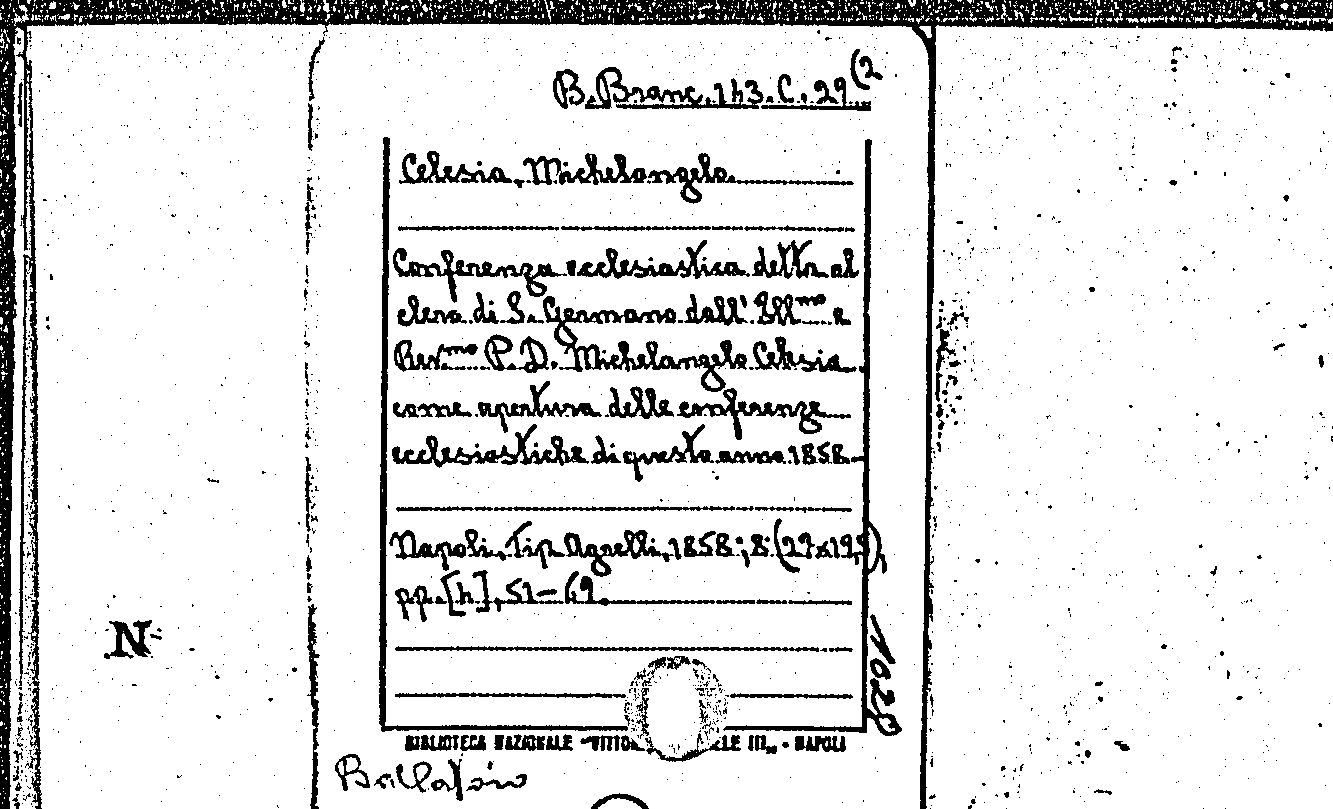 B. Branc. 143. C. 29 (2
Celesia, Michelangelo.
Conferenza ecclesiastica detta al
clero di S. Germano dall' Ill.mo e
Rev.mo P. D. Michelangelo Celesia
come apertura delle conferenze
ecclesiastiche di questo anno 1858.
Napoli, Tip. Agnelli, 1858; 8° (27x19,5),
pp. [4], 51-69.
1029
N
BIBLIOTECA NAZIONALE "VITTORIO EMANUELE III" - NAPOLI